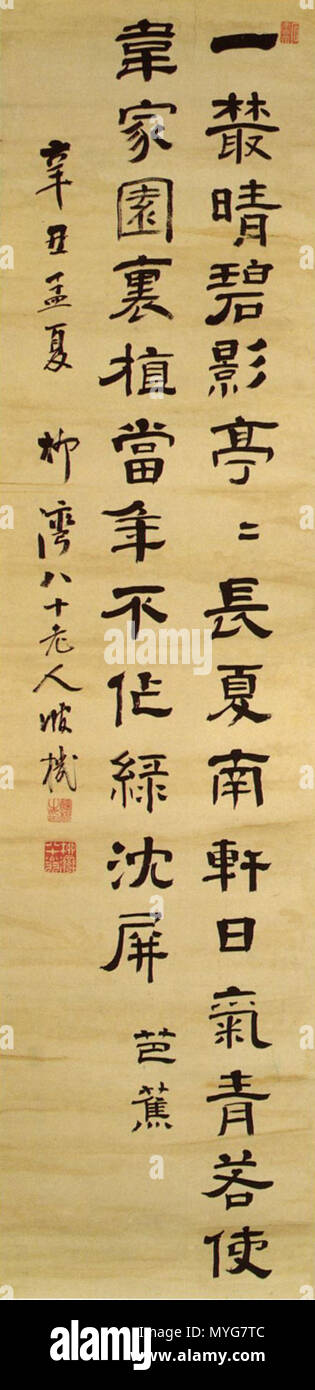 一叢晴碧影亭〻長夏南軒日氣青若使
韋家園裏植當年不作綠沈屏 芭蕉
辛丑孟夏 柳灣八十老人 機
alamy
alamy
Image ID: MYG7TC
www.alamy.com